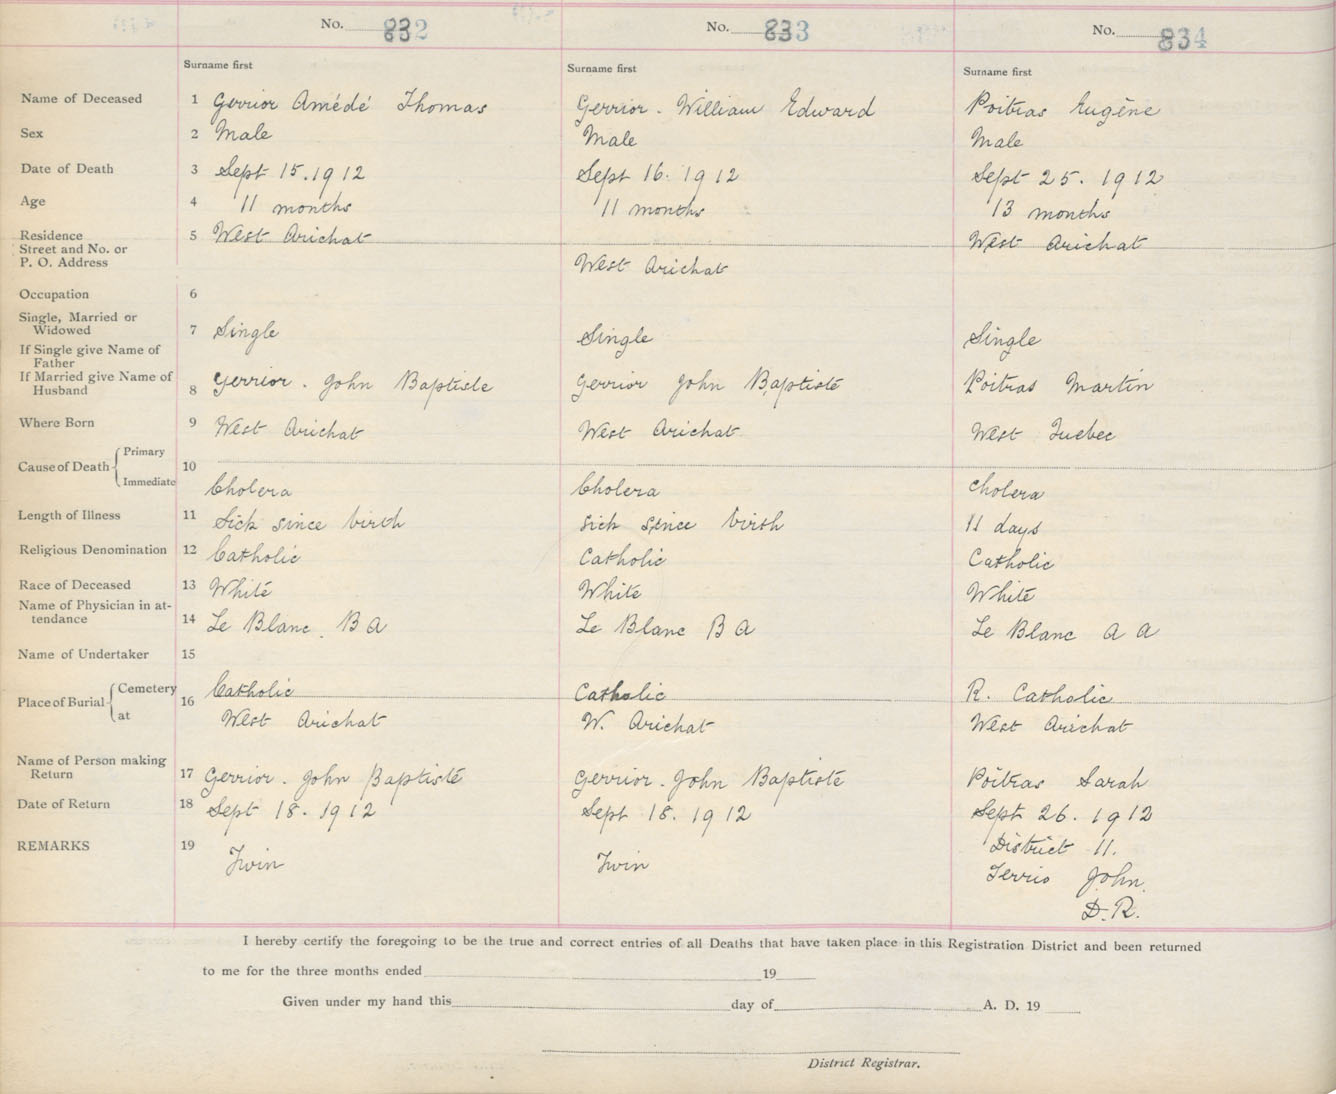 No. 832 No. 833 No. 834
Surname first Surname first Surname first
Name of Deceased 1 Gerrior Amédé Thomas Gerrior. William Edward Poitras Eugène
Sex 2 Male Male Male
Date of Death 3 Sept 15. 1912 Sept 16. 1912 Sept 25. 1912
Age 4 11 months 11 months 13 months
Residence
Street and No. or
P. O. Address 5 West Arichat West Arichat West Arichat
Occupation 6
Single, Married or
Widowed 7 Single Single Single
If Single give Name of
Father
If Married give Name of
Husband 8 Gerrior. John Baptiste Gerrior John Baptiste Poitras Martin
Where Born 9 West Arichat West Arichat West Quebec
Cause of Death Primary 10
Immediate Cholera Cholera Cholera
Length of Illness 11 Sick since birth Sick since birth 11 days
Religious Denomination 12 Catholic Catholic Catholic
Race of Deceased 13 White White White
Name of Physician in at-
tendance 14 Le Blanc B A Le Blanc B A Le Blanc A A
Name of Undertaker 15
Place of Burial Cemetery 16 Catholic Catholic R. Catholic
at West Arichat W. Arichat West Arichat
Name of Person making
Return 17 Gerrior. John Baptiste Gerrior. John Baptiste Poitras Sarah
Date of Return 18 Sept 18. 1912 Sept 18. 1912 Sept 26. 1912
REMARKS 19 Twin Twin District 11.
Terrio John.
D.R.
I hereby certify the foregoing to be the true and correct entries of all Deaths that have taken place in this Registration District and been returned
to me for the three months ended 19
Given under my hand this day of A. D. 19
District Registrar.